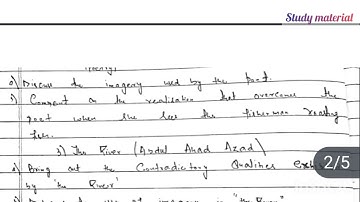 Study material
o) Discuss the imagery used by the poet.
Comment on the realisation that overcomes the
poet when she sees the fisherman roasting
fish.
3) The River (Abdul Ahad Azad)
Bring out the Contradictory Qualities
2/5
by 'the River'
imagery in "the River"